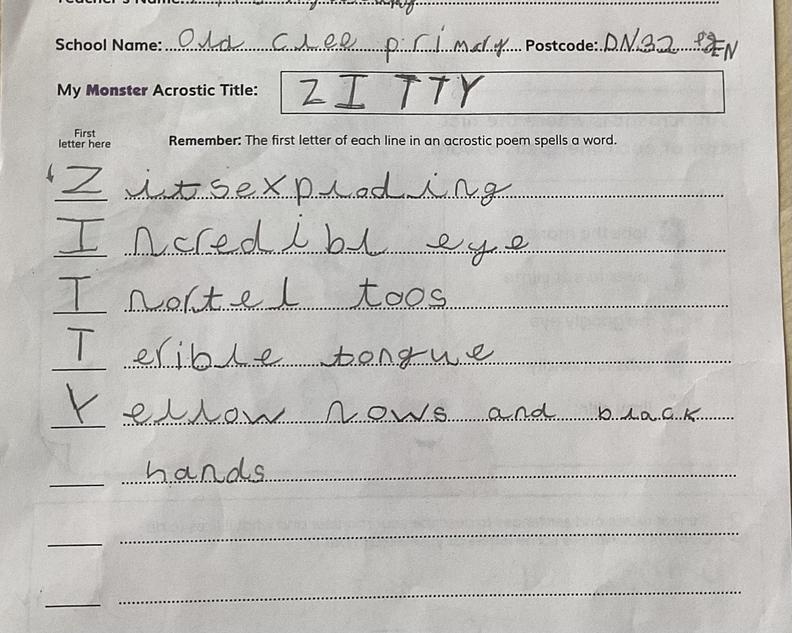 School Name: Old clee primary Postcode: DN32
My Monster Acrostic Title: ZITTY
First
letter here
Remember: The first letter of each line in an acrostic poem spells a word.
Z itsexploding
I ncredibl eye
T nortel toos
T erible tongue
Y ellow nows and black
hands